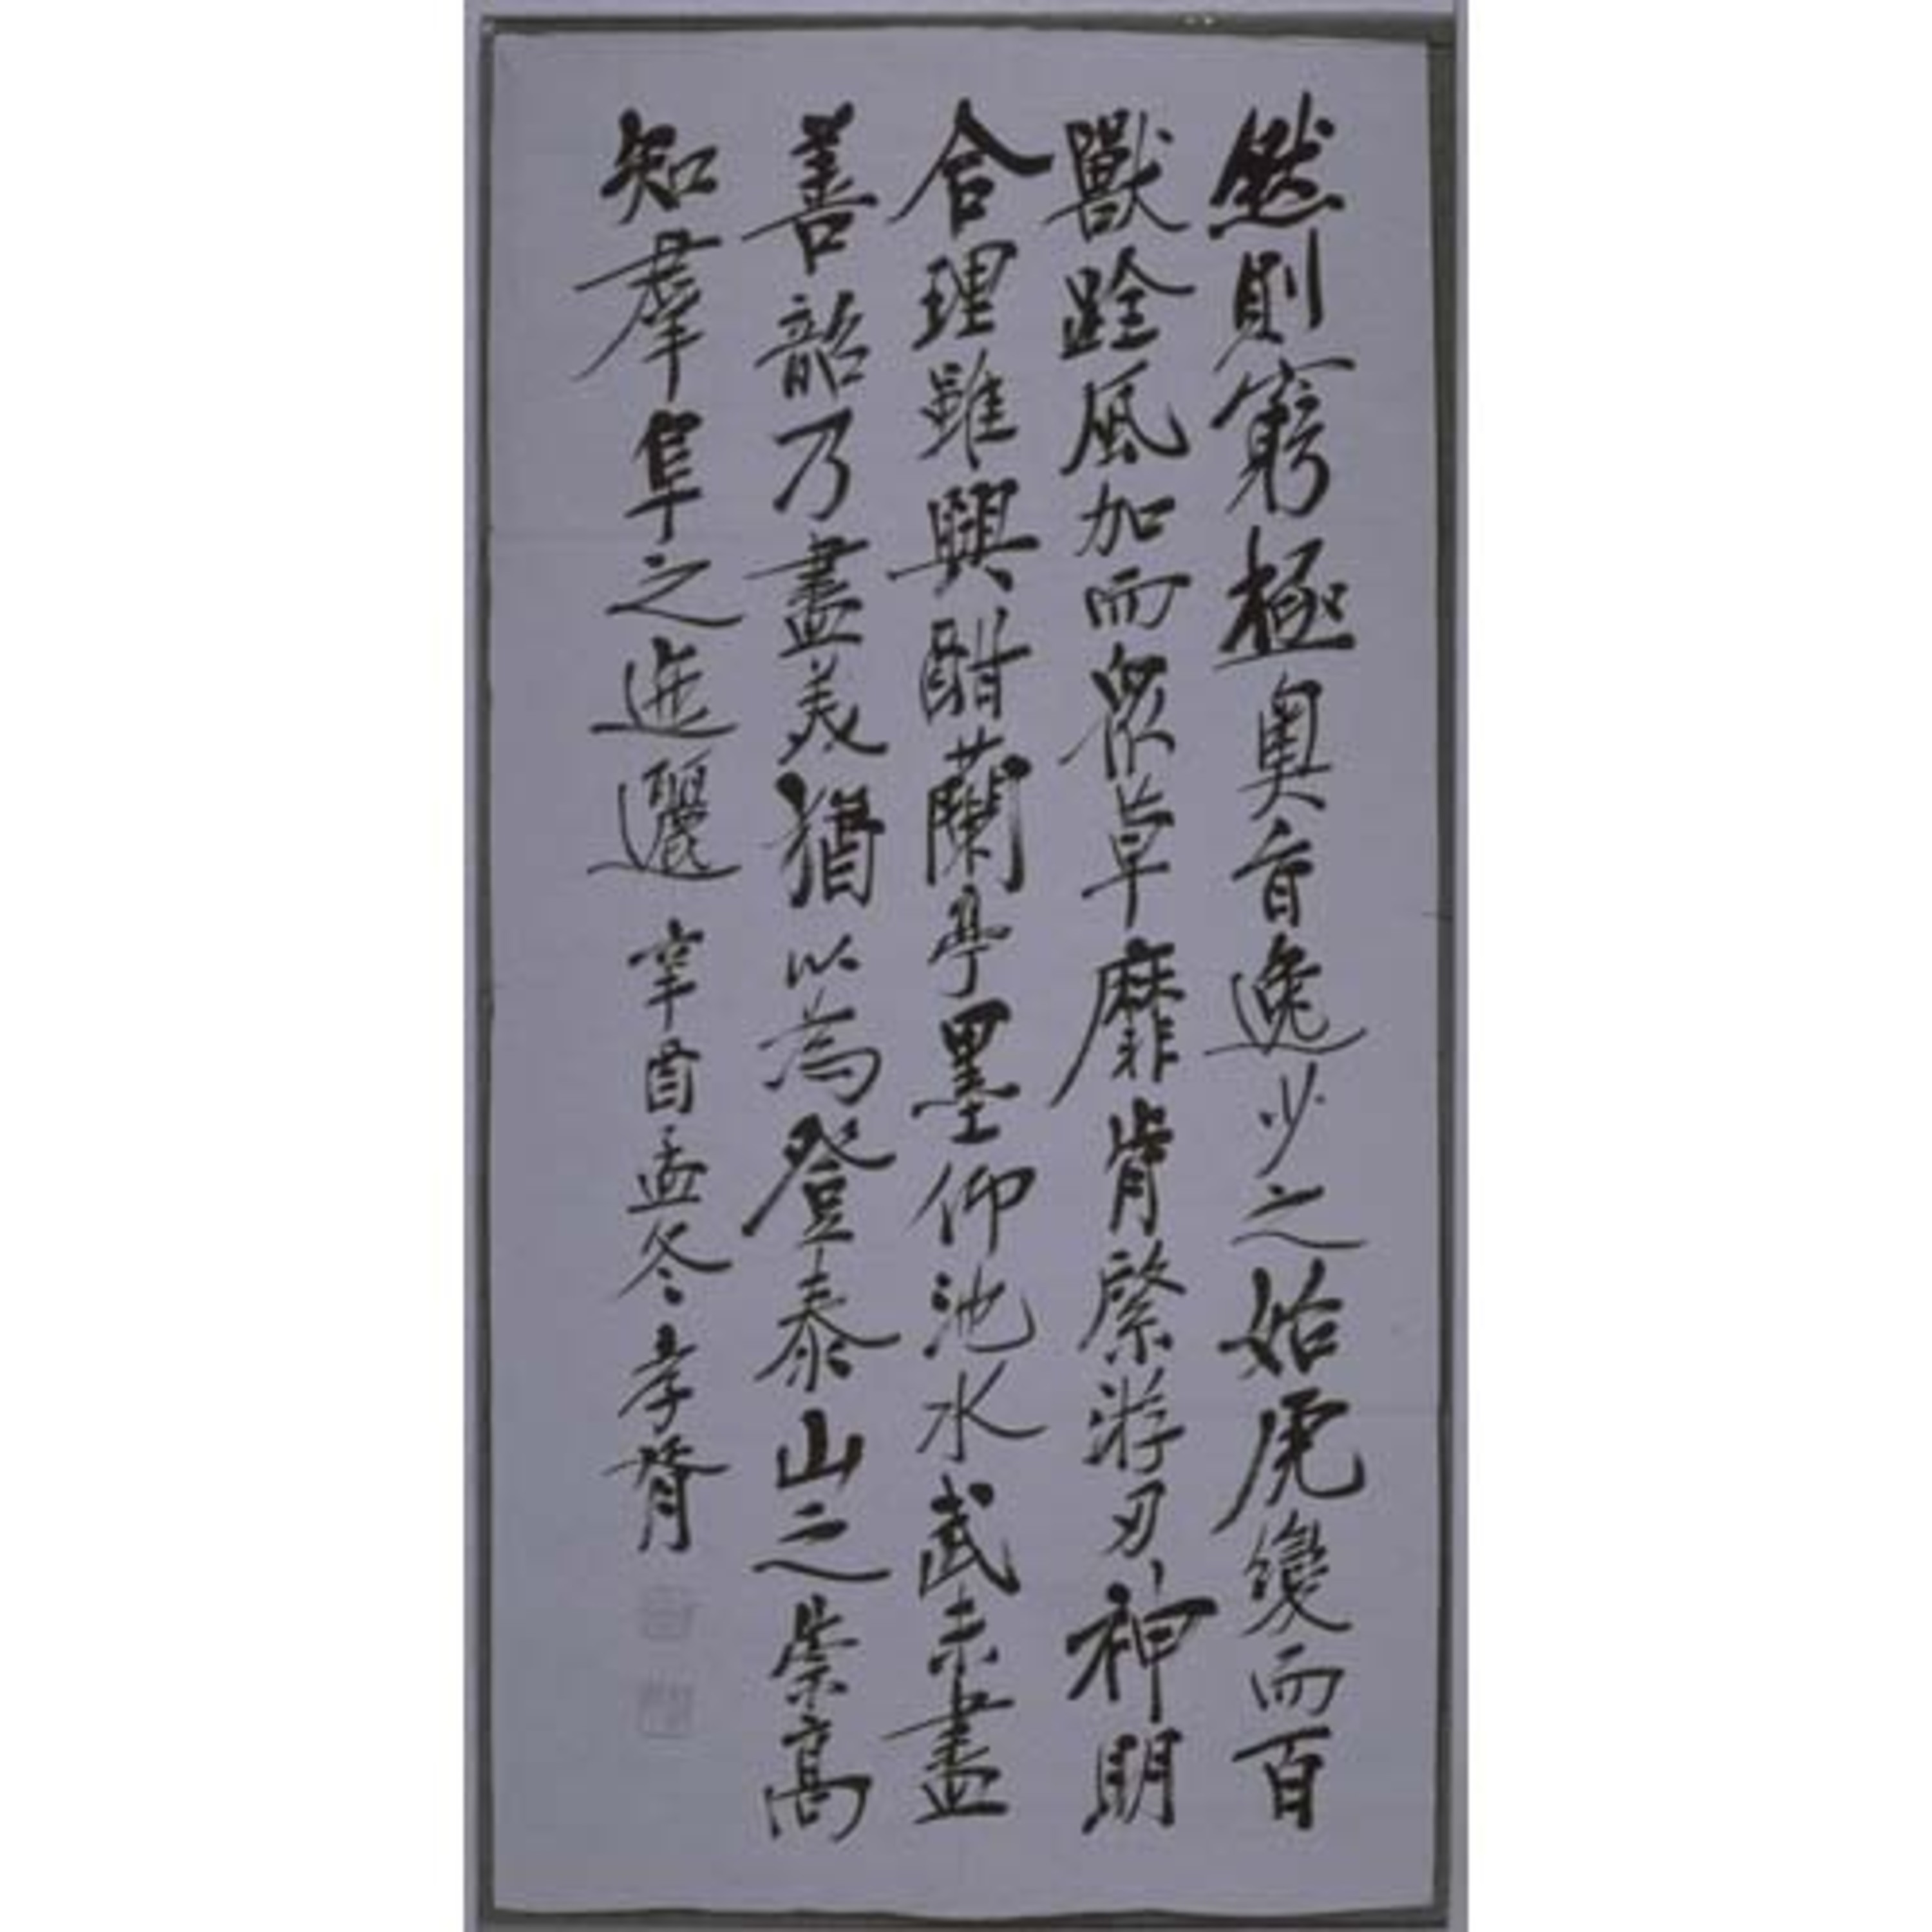 然則窮極奧旨逸少之始虎變而百
獸跧風加而眾草靡肯綮游刃神明
合理雖興酣蘭亭墨仰池水武未盡
善韶乃盡美猶以為登泰山之崇高
知群阜之迤邐 辛酉孟冬 孝胥